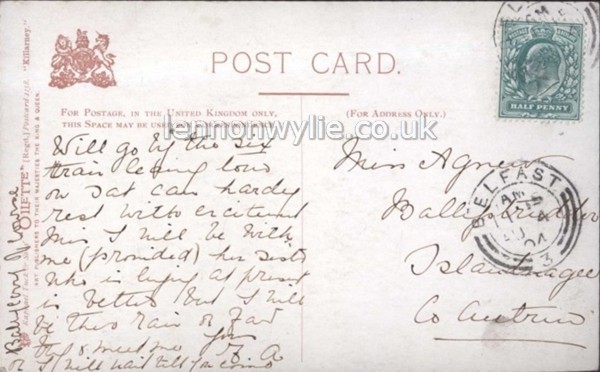 POST CARD.
FOR POSTAGE, IN THE UNITED KINGDOM ONLY,
THIS SPACE MAY BE USED
(FOR ADDRESS ONLY.)
lennonwylie.co.uk
HALF PENNY
BELFAST
BELFAST
AM
04
3
"OILETTE" [Regd.] Postcard "Killarney."
ART PUBLISHERS TO THEIR MAJESTIES THE KING & QUEEN.
Will go by the six
train
on Sat can hardly
rest with excitement
Miss I will be with
me (provided) her sister
who is lying at present
is better but I will
be there rain or fair
try & meet me
or I will wait till you come
Miss Agnew
Islandmagee
Co Antrim